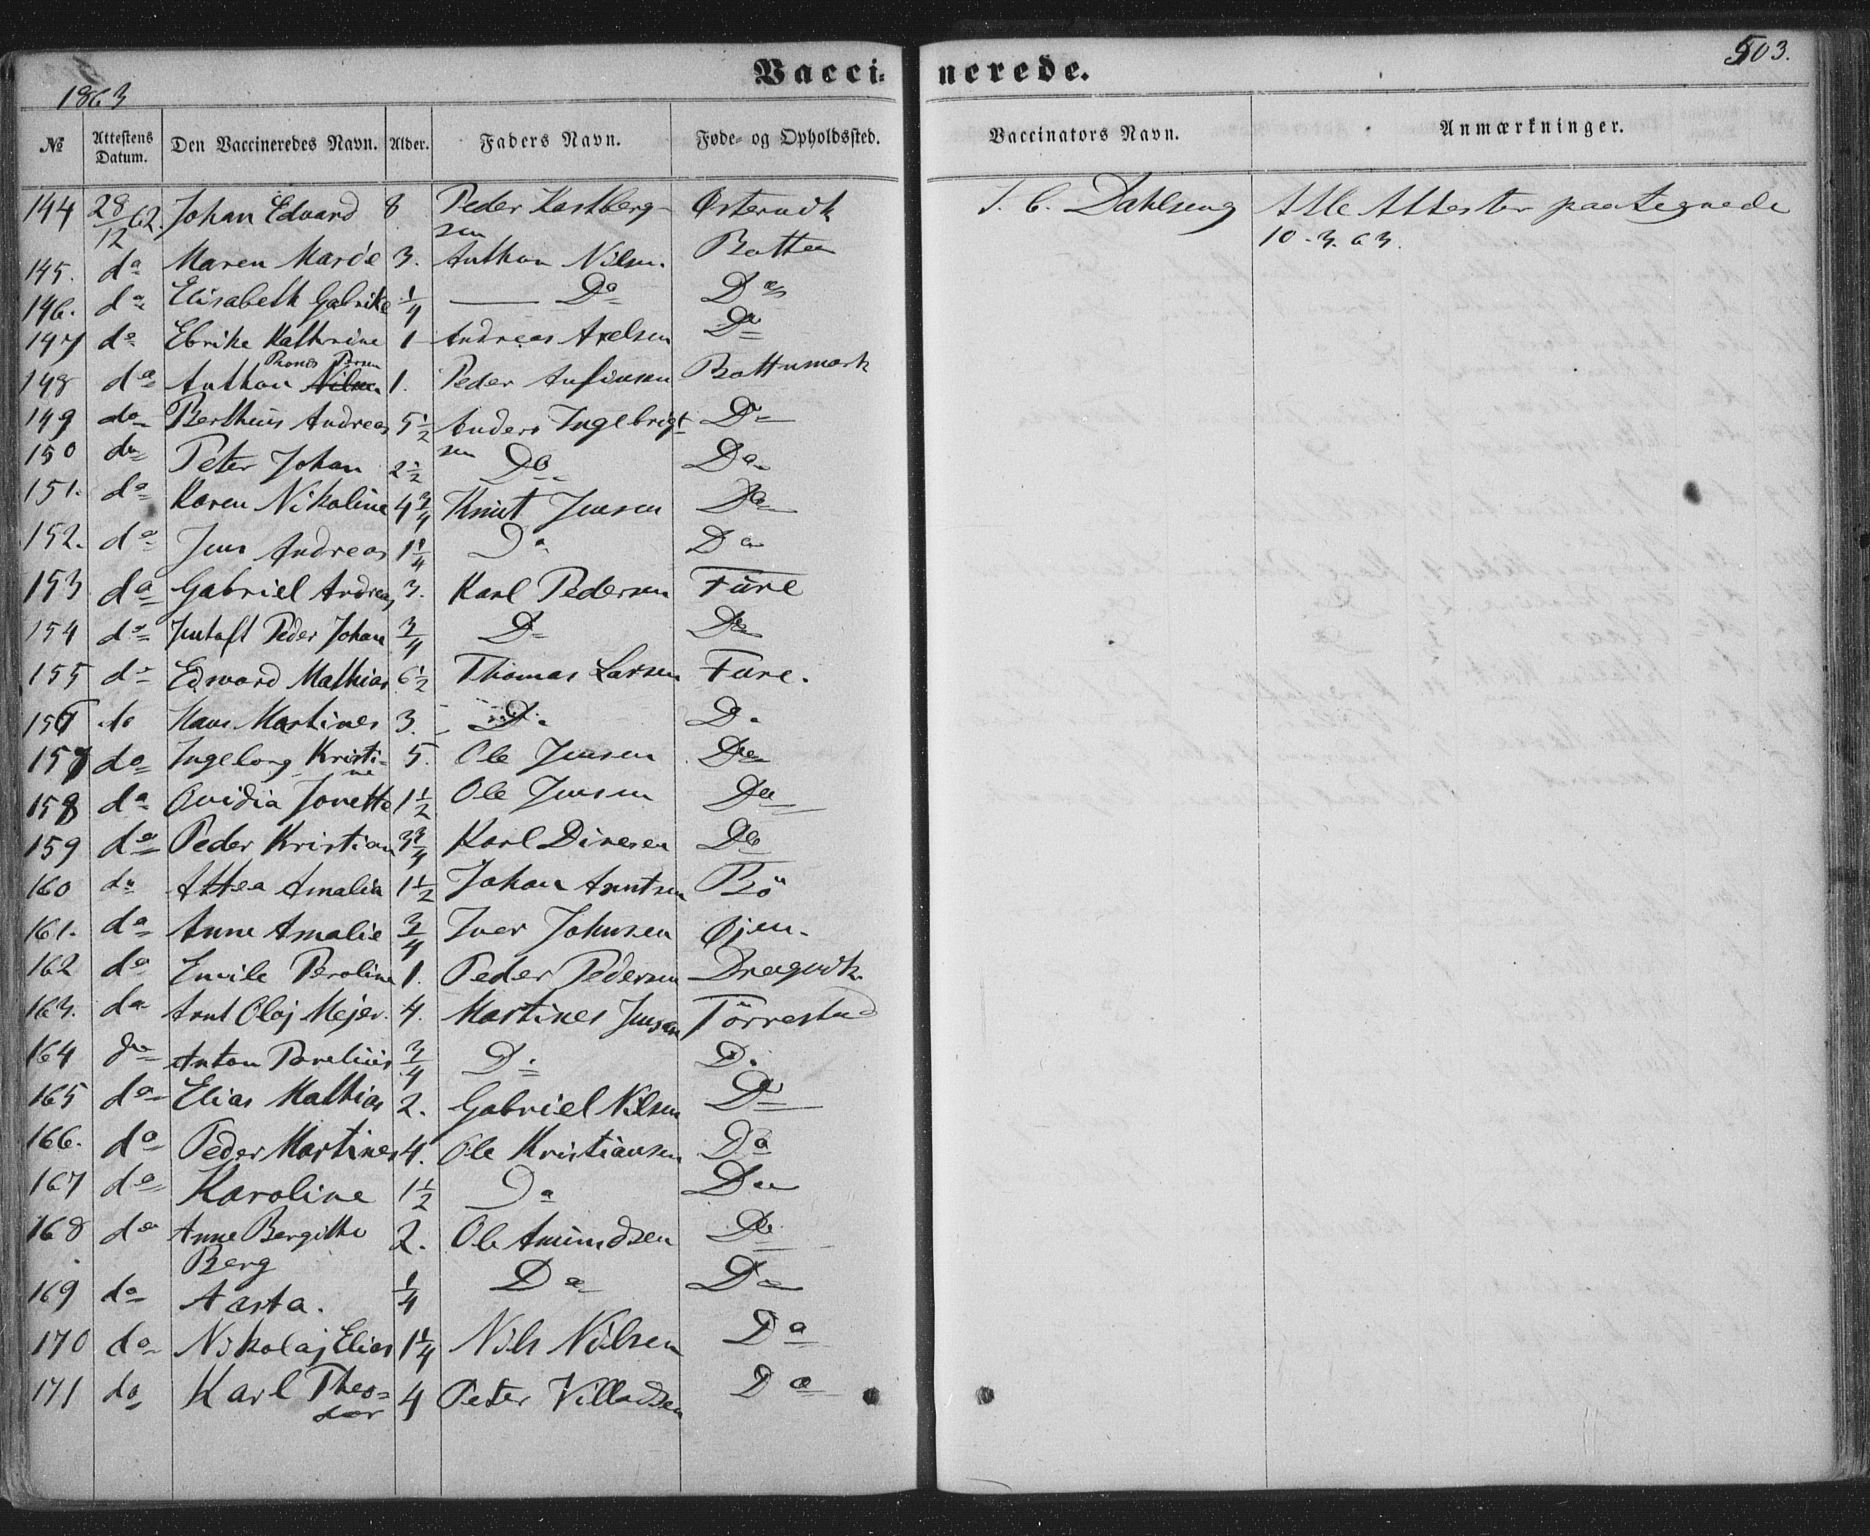 1863
Vaccinerede.
503.
№ Attestens Datum. Den Vaccineredes Navn. Alder. Faders Navn. Føde- og Opholdssted. Vaccinators Navn. Anmærkninger.
144 28/12 62. Johan Edvard 8 Peder Kastbergsen Østervik Dahlseng Alle Attester paategnede 10-3.63.
145. do Maren Marie 3. Anthon Nilsen Botten
146. do Elisabeth Gabrike 1/4 — Do Do
147 do Ebrike Kathrine 1 Andreas Axelsen Do
148 do Anthon Nilsen 1. Peder Anfinsen Bottnmark
149 do Berthius Andreas 5 1/2 Anders Ingebrigtsen Do
150 do Peter Johan 2 1/2 Do Do
151. do Karen Nikoline 4 3/4 Knut Jensen Do
152. do Jens Andreas 1 1/4 Do Do
153 do Gabriel Andreas 3. Karl Pedersen Fure
154 do Peder Johan 3/4 Do Do
155 do Edward Mathias 6 1/2 Thomas Larsen Fure.
156 do Hans Martines 3. Do Do
157 do Ingeborg Kristine 5. Ole Jensen Do
158 do Ovidia Jonette 1 1/2 Ole Jensen Do
159 do Peder Kristian 3 3/4 Karl Dinesen Do
160 do Althea Amalia 1 1/2 Johan Arntsen Bö
161. do Anne Amalie 3/4 Iver Johnsen Øjen.
162 do Emile Peroline 1. Peder Pedersen Dregvik
163. do Arnt Olaj Mejer. 4. Martines Jensen Törrestad
164 do Anton Parelius 3/4 Do Do
165 do Elias Mathias 2. Gabriel Nilsen Do
166. do Peder Martines 4. Ole Kristiansen Do
167 do Karoline 1 1/2 Do Do
168 do Anne Bergitte Berg 2. Ole Amundsen Do
169 do Aasta. 1/4 Do Do
170 do Nikolaj Elias 1 1/4 Nils Nilsen Do
171 do Karl Theodor 4 Peter Villadsen Do